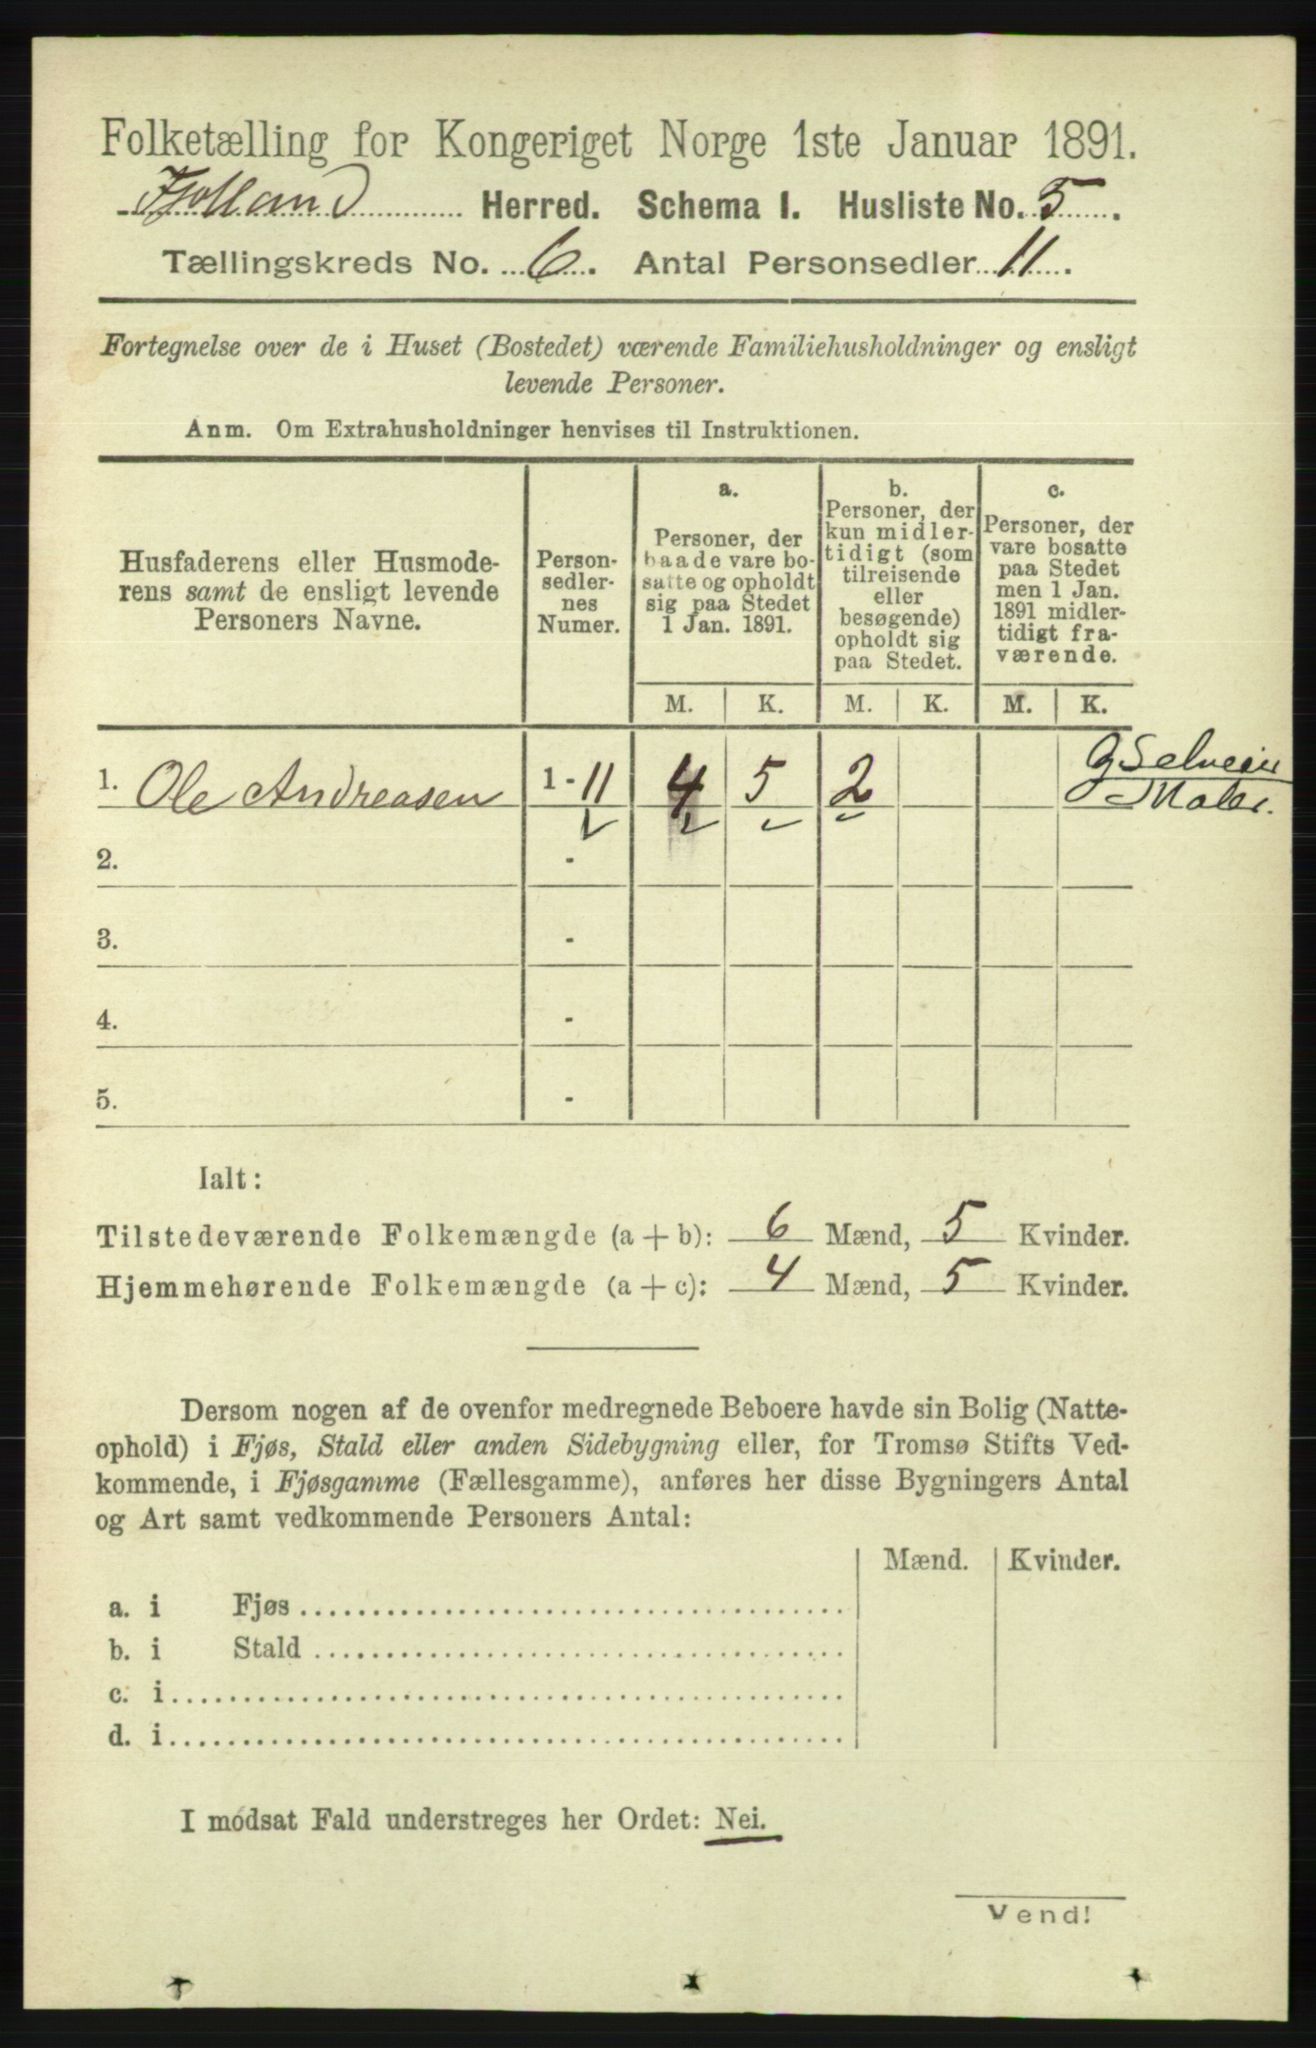 Folketælling for Kongeriget Norge 1ste Januar 1891.
Fjolland Herred. Schema 1. Husliste No. 5.
Tællingskreds No. 6. Antal Personsedler 11.
Fortegnelse over de i Huset (Bostedet) værende Familiehusholdninger og ensligt
levende Personer.
Anm. Om Extrahusholdninger henvises til Instruktionen.
Husfaderens eller Husmode-
rens samt de ensligt levende
Personers Navne.
Person-
sedler-
nes
Numer.
a.
Personer, der
baade vare bo-
satte og opholdt
sig paa Stedet
1 Jan. 1891.
b.
Personer, der
kun midler-
tidigt (som
tilreisende
eller
besøgende)
opholdt sig
paa Stedet.
c.
Personer, der
vare bosatte
paa Stedet
men 1 Jan.
1891 midler-
tidigt fra-
værende.
M. K. M. K. M. K.
1. Ole Andreasen 1 - 11 4 5 2 G Selveier
Maler.
2. -
3. -
4. -
5. -
Ialt:
Tilstedeværende Folkemængde (a + b): 6 Mænd, 5 Kvinder.
Hjemmehørende Folkemængde (a + c): 4 Mænd, 5 Kvinder.
Dersom nogen af de ovenfor medregnede Beboere havde sin Bolig (Natte-
ophold) i Fjøs, Stald eller anden Sidebygning eller, for Tromsø Stifts Ved-
kommende, i Fjøsgamme (Fællesgamme), anføres her disse Bygningers Antal
og Art samt vedkommende Personers Antal:
Mænd. Kvinder.
a. i Fjøs
b. i Stald
c. i
d. i
I modsat Fald understreges her Ordet: Nei.
Vend!